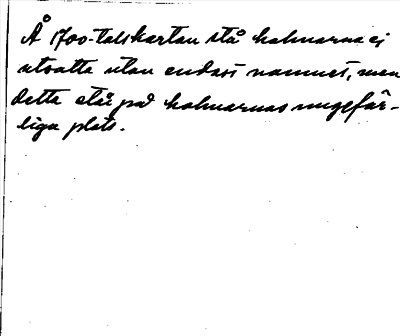 Å 1700-talskartan stå holmarna ej
utsatta utan endast namnet, men
detta står på holmarnas ungefär-
liga plats.